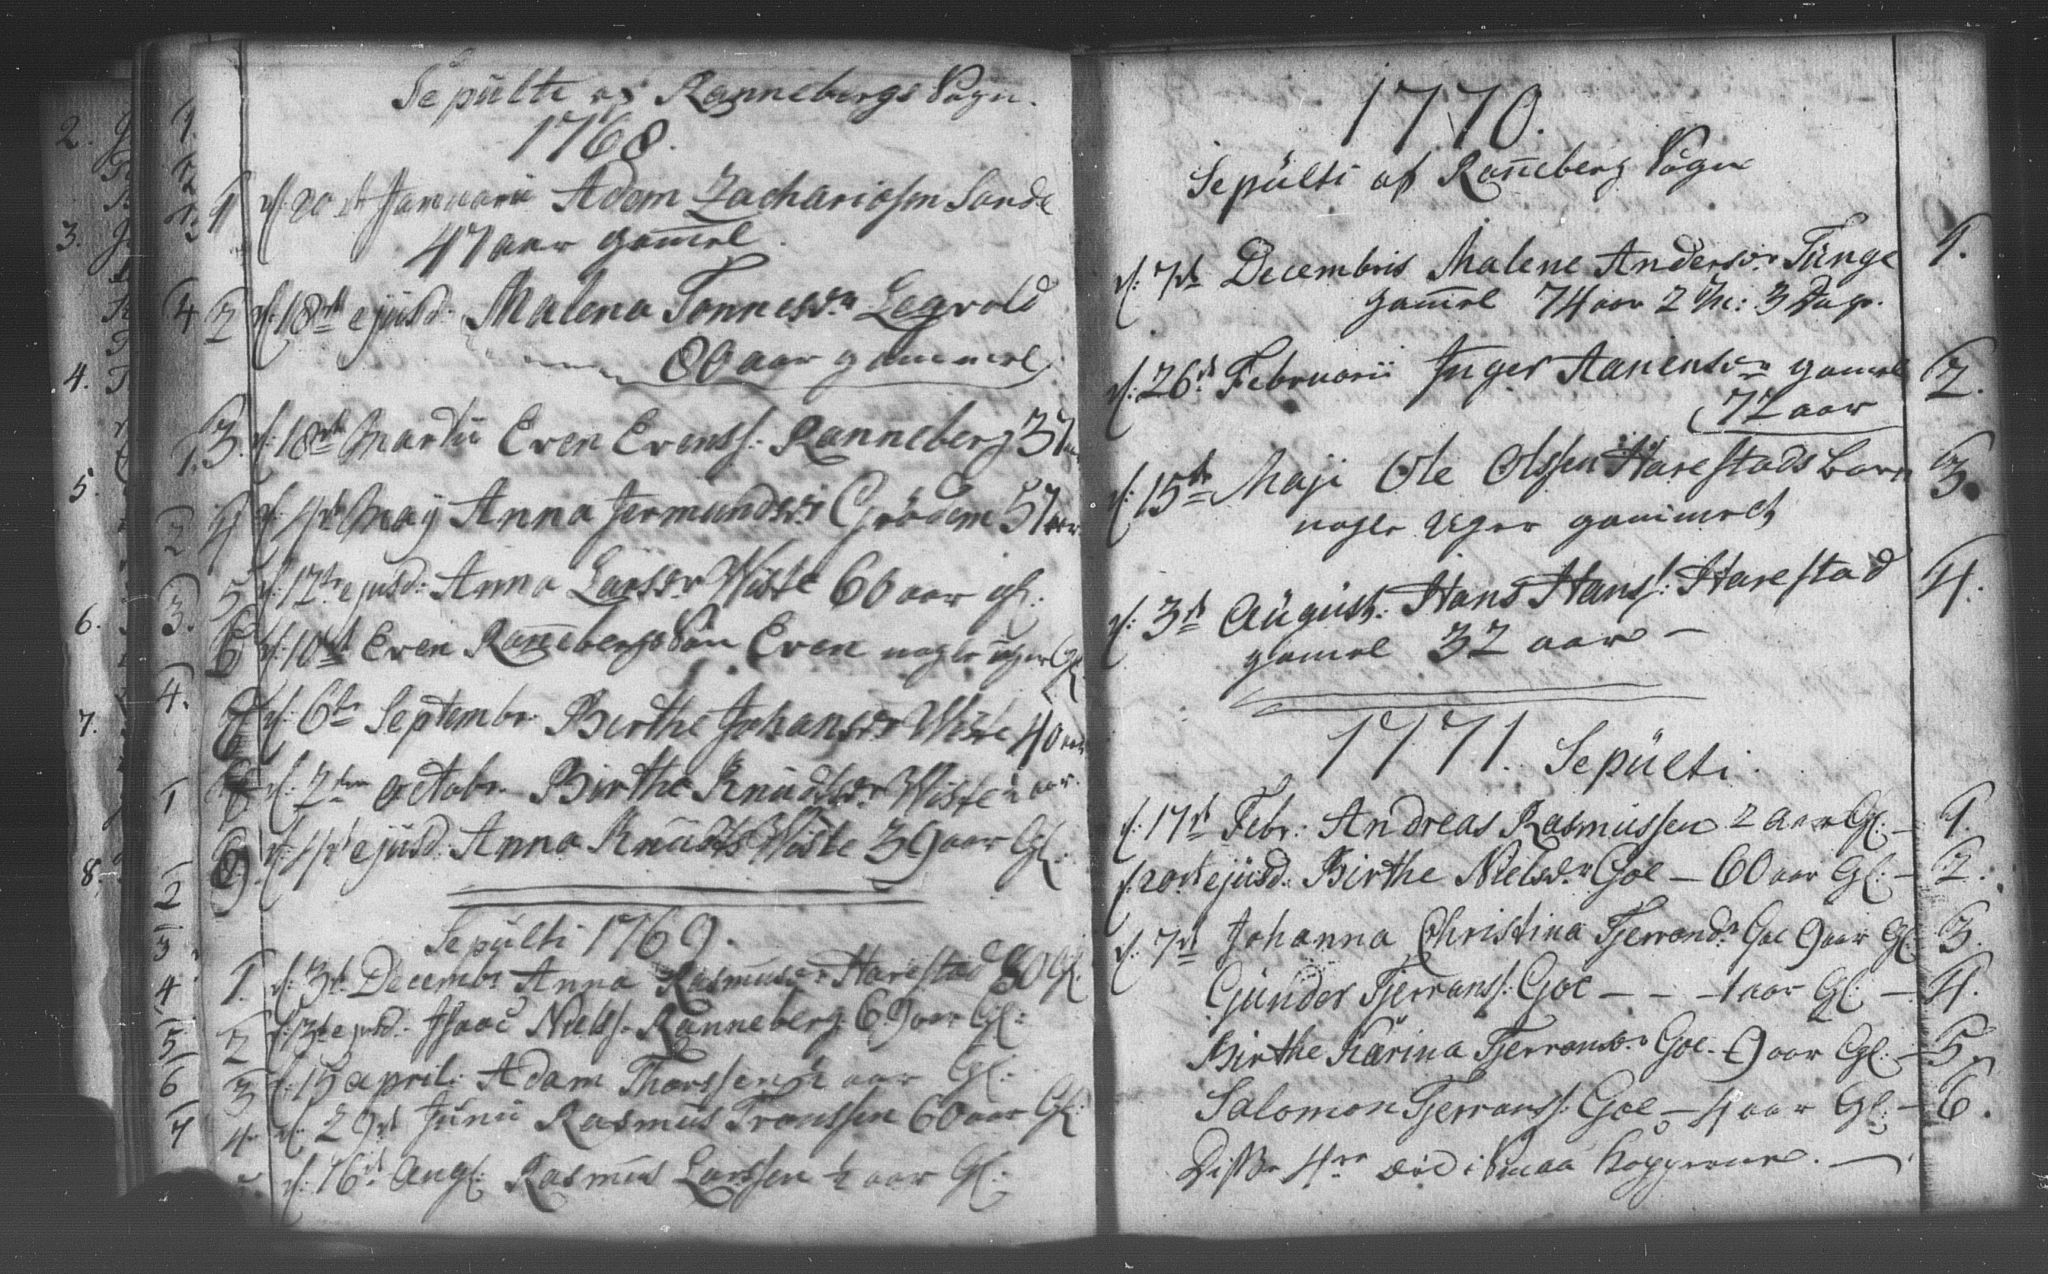 Sepulti af Ranneberg Sogn.
1768.
1 d: 20 dt Januarii Adam Zachariasen Sande
47 aar gamel.
2 d: 18dt ejusd: Malena Tønnesdr Legvold
80 aar gammel
3. d: 18de Martii Even Evenss: Ranneberg 37 aar
4 d: 4dt May Anna Jermundsdr Grødem 57 aar
5 d: 17de ejusd: Anna Larsdr Wiste 60 aar gl:
6 d: 10dt Even Rannebergs Søn Even nogle uger Gl
7 d: 6te Septembr Birthe Johansdr Wiste 40 aar
8 d: 2den Octobr Birthe Knudsdr Wiste aar
9. d: 4dt ejusd: Anna Knuds Wiste 39 aar Gl:
Sepulti 1769.
1. d: 3dt Decembr Anna Rasmusdr Harestad 80 Gl.
2 d: 13de ejusd: Isaac Niels: Ranneberg 69 aar Gl:
3 d: 15 april: Adam Thorssen ½ aar Gl:
4. d: 29dt Junii Rasmus Tronssen 60 aar Gl:
5. d: 16dt Aug: Rasmus Larssen ½ aar Gl:
1770.
Sepülti af Ranneberg Sogn
d: 7dt Decembris Malene Andersdr Tünge 1.
gamel 74 aar 2 M: 3 Dage.
d: 26dt Februarii Inger Aanensdr gamel 2.
72 aar
d: 15de Maji Ole Olssen Harestads barn 3.
nogle Uger gammelt
d: 3dt August: Hans Hans: Harestad 4.
gamel 32 aar –
1771. Sepülti.
d: 17dt Febr: Andreas Rasmussen 2 aar Gl: – 1.
d: 20dt ejusd: Birthe Nielsdr Goe – 60 aar Gl: – 2.
d: 7dt Johanna Christina Tjerrandr Goe 9 aar Gl: 3.
Gunder Tjerranss: Goe – – – 1 aar Gl: – 4.
Birthe Karina Tjerransdr Goe – 9 aar Gl: – 5.
Salomon Tjerranss: Goe – 4 aar Gl: – 6.
Disse 4re død i Smaa Kopperne. –